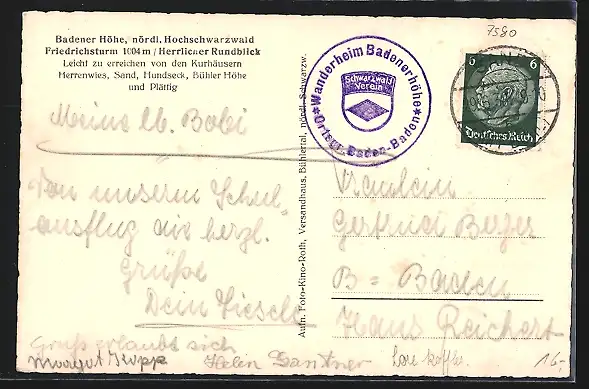 7580
Badener Höhe, nördl. Hochschwarzwald
Friedrichsturm 1004 m / Herrlicher Rundblick
Leicht zu erreichen von den Kurhäusern
Herrenwies, Sand, Hundseck, Bühler Höhe
und Plättig
Meine lb. Bobi
Von unserm Schul-
ausflug die herzl.
Grüße
Dein Liesele
Gruß erlaubt sich
Margot Kopp
Helen Gantner
Aufn. Foto-Kino-Roth, Versandhaus, Bühlertal, nördl. Schwarzw.
Wanderheim Badenerhöhe
Schwarzwald
Verein
Ortsgr. Baden-Baden
6 6
Deutsches Reich
Fräulein
Gertrud
B = Baden
Hans Reichert
16.-